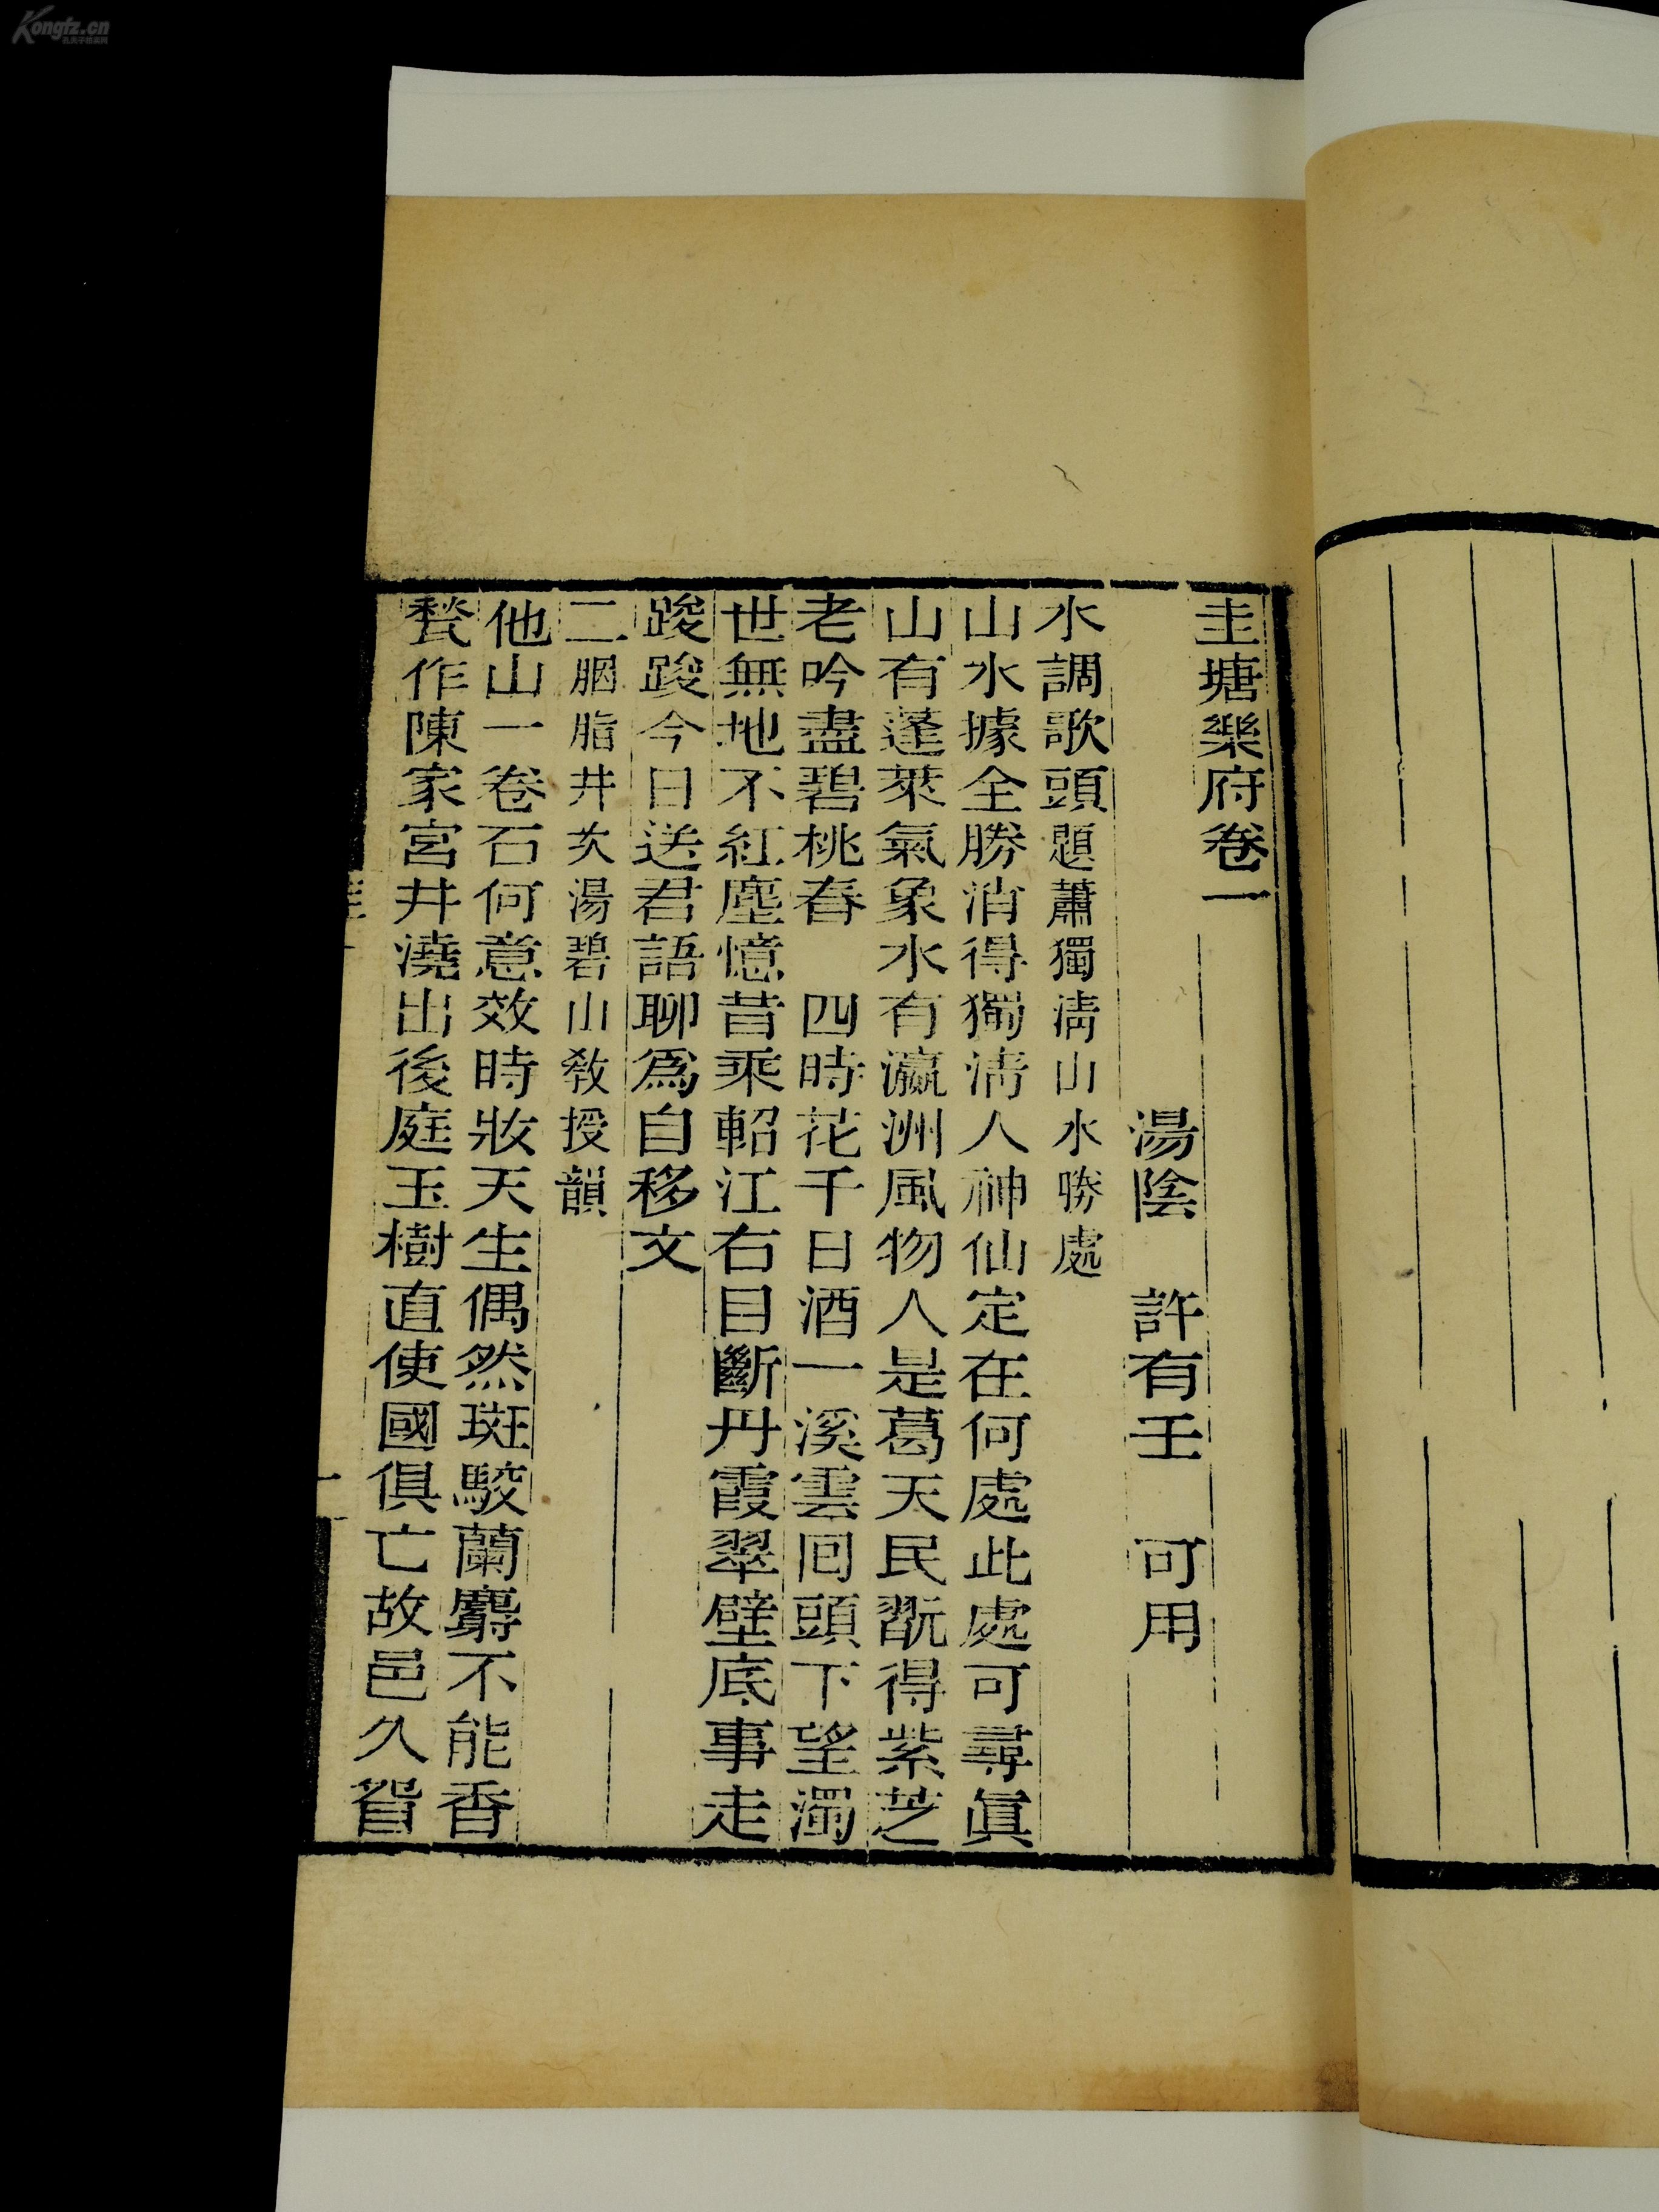 圭塘樂府卷一
湯陰 許有壬 可用
水調歌頭題蕭獨淸山水勝處
山水據全勝消得獨淸人神仙定在何處此處可尋眞
山有蓬萊氣象水有瀛洲風物人是葛天民翫得紫芝
老吟盡碧桃春 四時花千日酒一溪雲囘頭下望濁
世無地不紅塵憶昔乘軺江右目斷丹霞翠壁底事走
踆踆今日送君語聊爲自移文
二胭脂井次湯碧山敎授韻
他山一卷石何意效時妝天生偶然斑駁蘭麝不能香
甃作陳家宮井澆出後庭玉樹直使國俱亡故邑久眢
Kongfz.cn
孔夫子旧书网